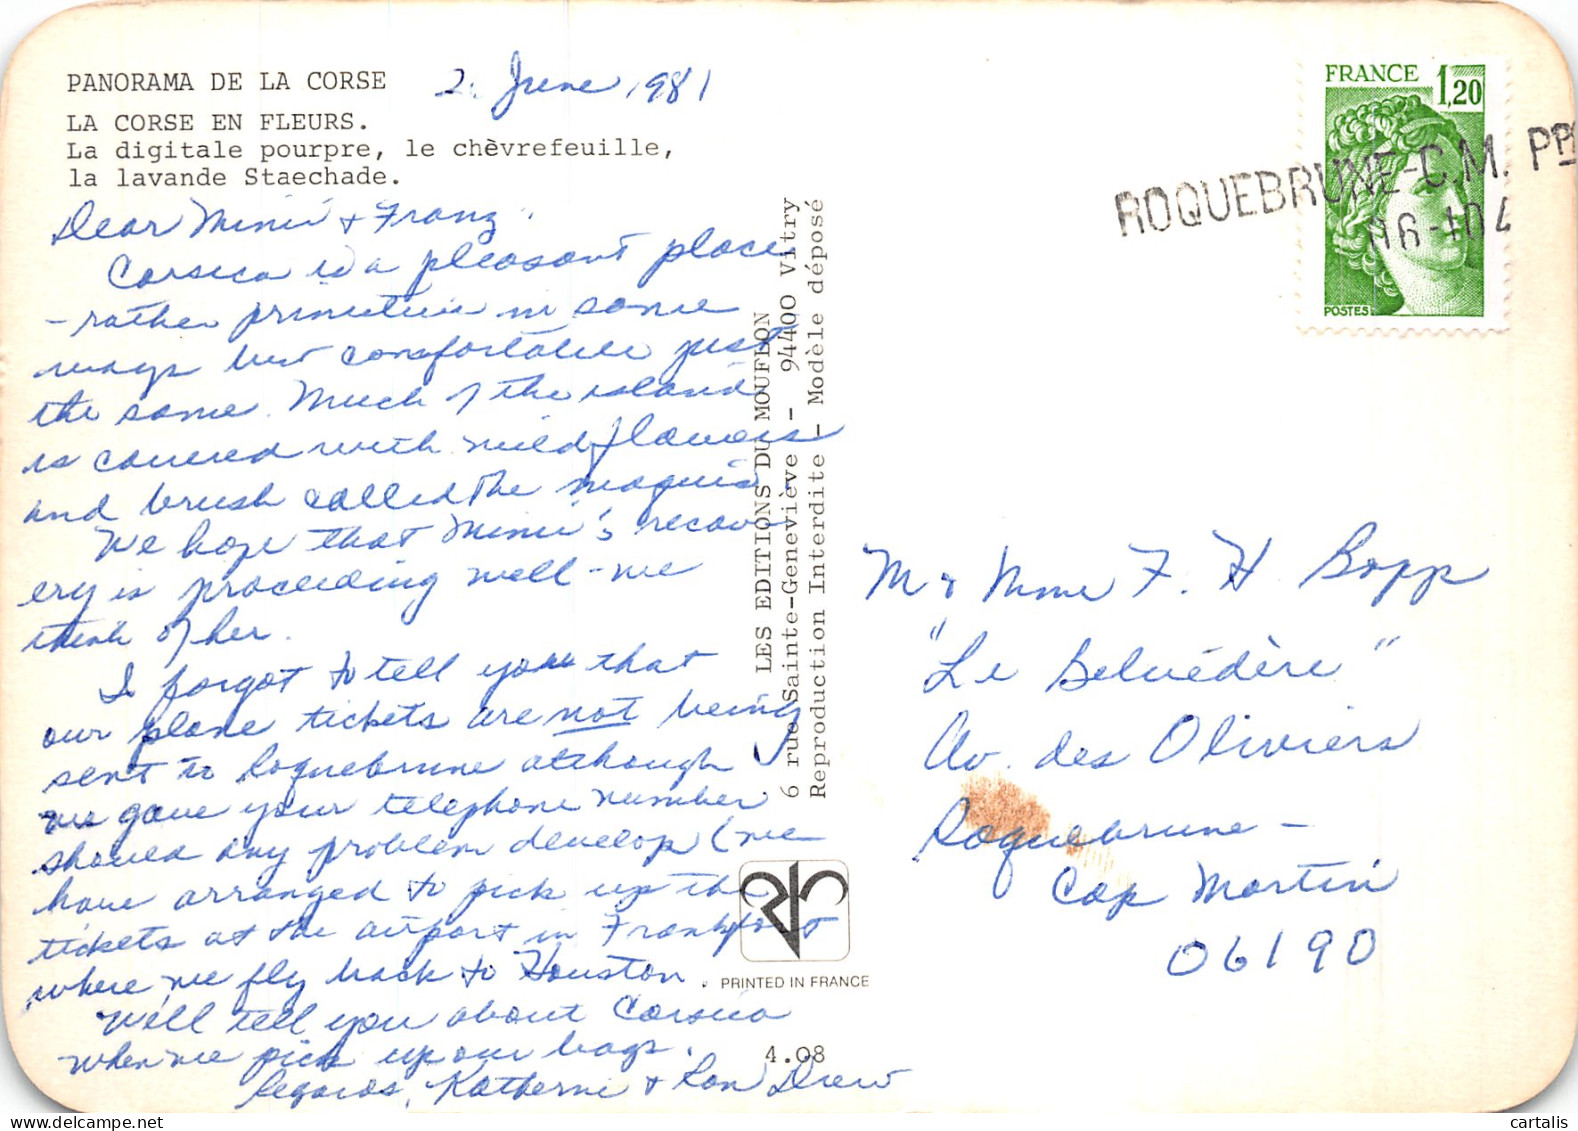 PANORAMA DE LA CORSE
2. June 1981
LA CORSE EN FLEURS.
La digitale pourpre, le chèvrefeuille,
la lavande Staechade.
Dear Mimi & Franz,
Corsica is a pleasant place
- rather primitive in some
ways but comfortable just
the same. Much of the island
is covered with wildflowers
and brush called the maquis.
We hope that Mimi's recov-
ery is proceeding well - we
think of her.
I forgot to tell you that
our plane tickets are not being
sent to Roquebrune although
we gave your telephone number
should any problem develop (we
have arranged to pick up the
tickets at the airport in Frankfort
where we fly back to Houston.
We'll tell you about Corsica
when we pick up our bags.
Regards, Katherine & Ron Drew
LES EDITIONS DU MOUFLON
6 rue Sainte-Geneviève - 94400 Vitry
Reproduction Interdite - Modèle déposé
PRINTED IN FRANCE
4.08
FRANCE 1,20
POSTES
ROQUEBRUNE-C.M. PPAL
M & Mme F. H. Bopp
"Le Belvédère"
Av. des Oliviers
Roquebrune -
Cap Martin
06190
cartalis.com